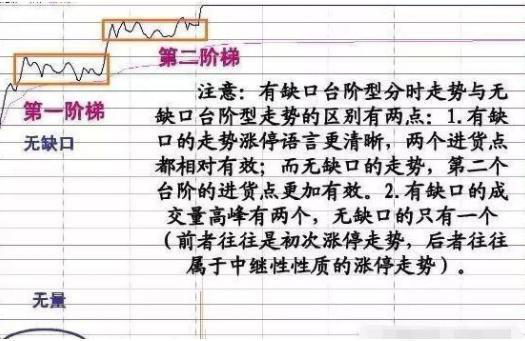 第二阶梯
第一阶梯
无缺口
注意：有缺口台阶型分时走势与无
缺口台阶型走势的区别有两点：1.有缺
口的走势涨停语言更清晰，两个进货点
都相对有效；而无缺口的走势，第二个
台阶的进货点更加有效。2.有缺口的成
交量高峰有两个，无缺口的只有一个
（前者往往是初次涨停走势，后者往往
属于中继性性质的涨停走势）。
无量